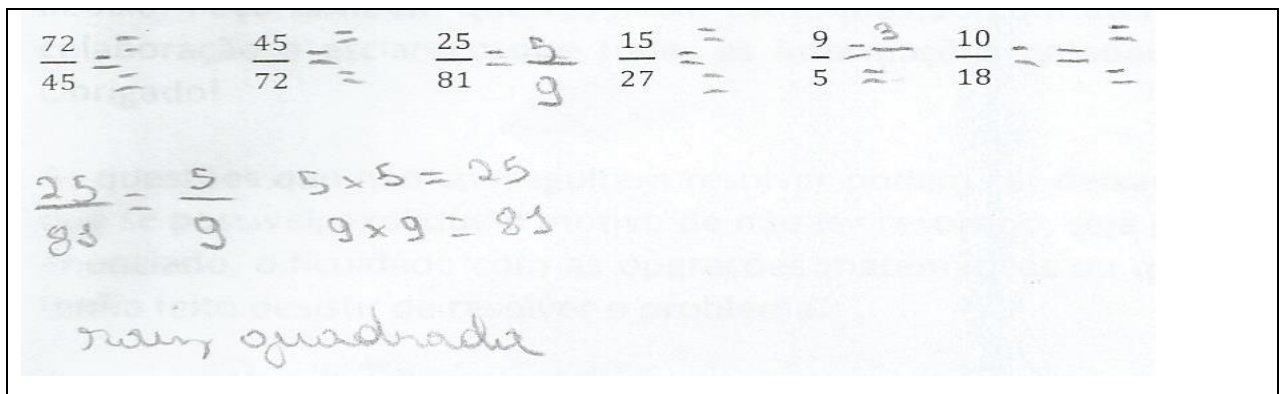 72/45 = = 45/72 = = 25/81 = 5/9 15/27 = = 9/5 = 3/= 10/18 = = =
25/81 = 5/9 5 x 5 = 25
9 x 9 = 81
raiz quadrada